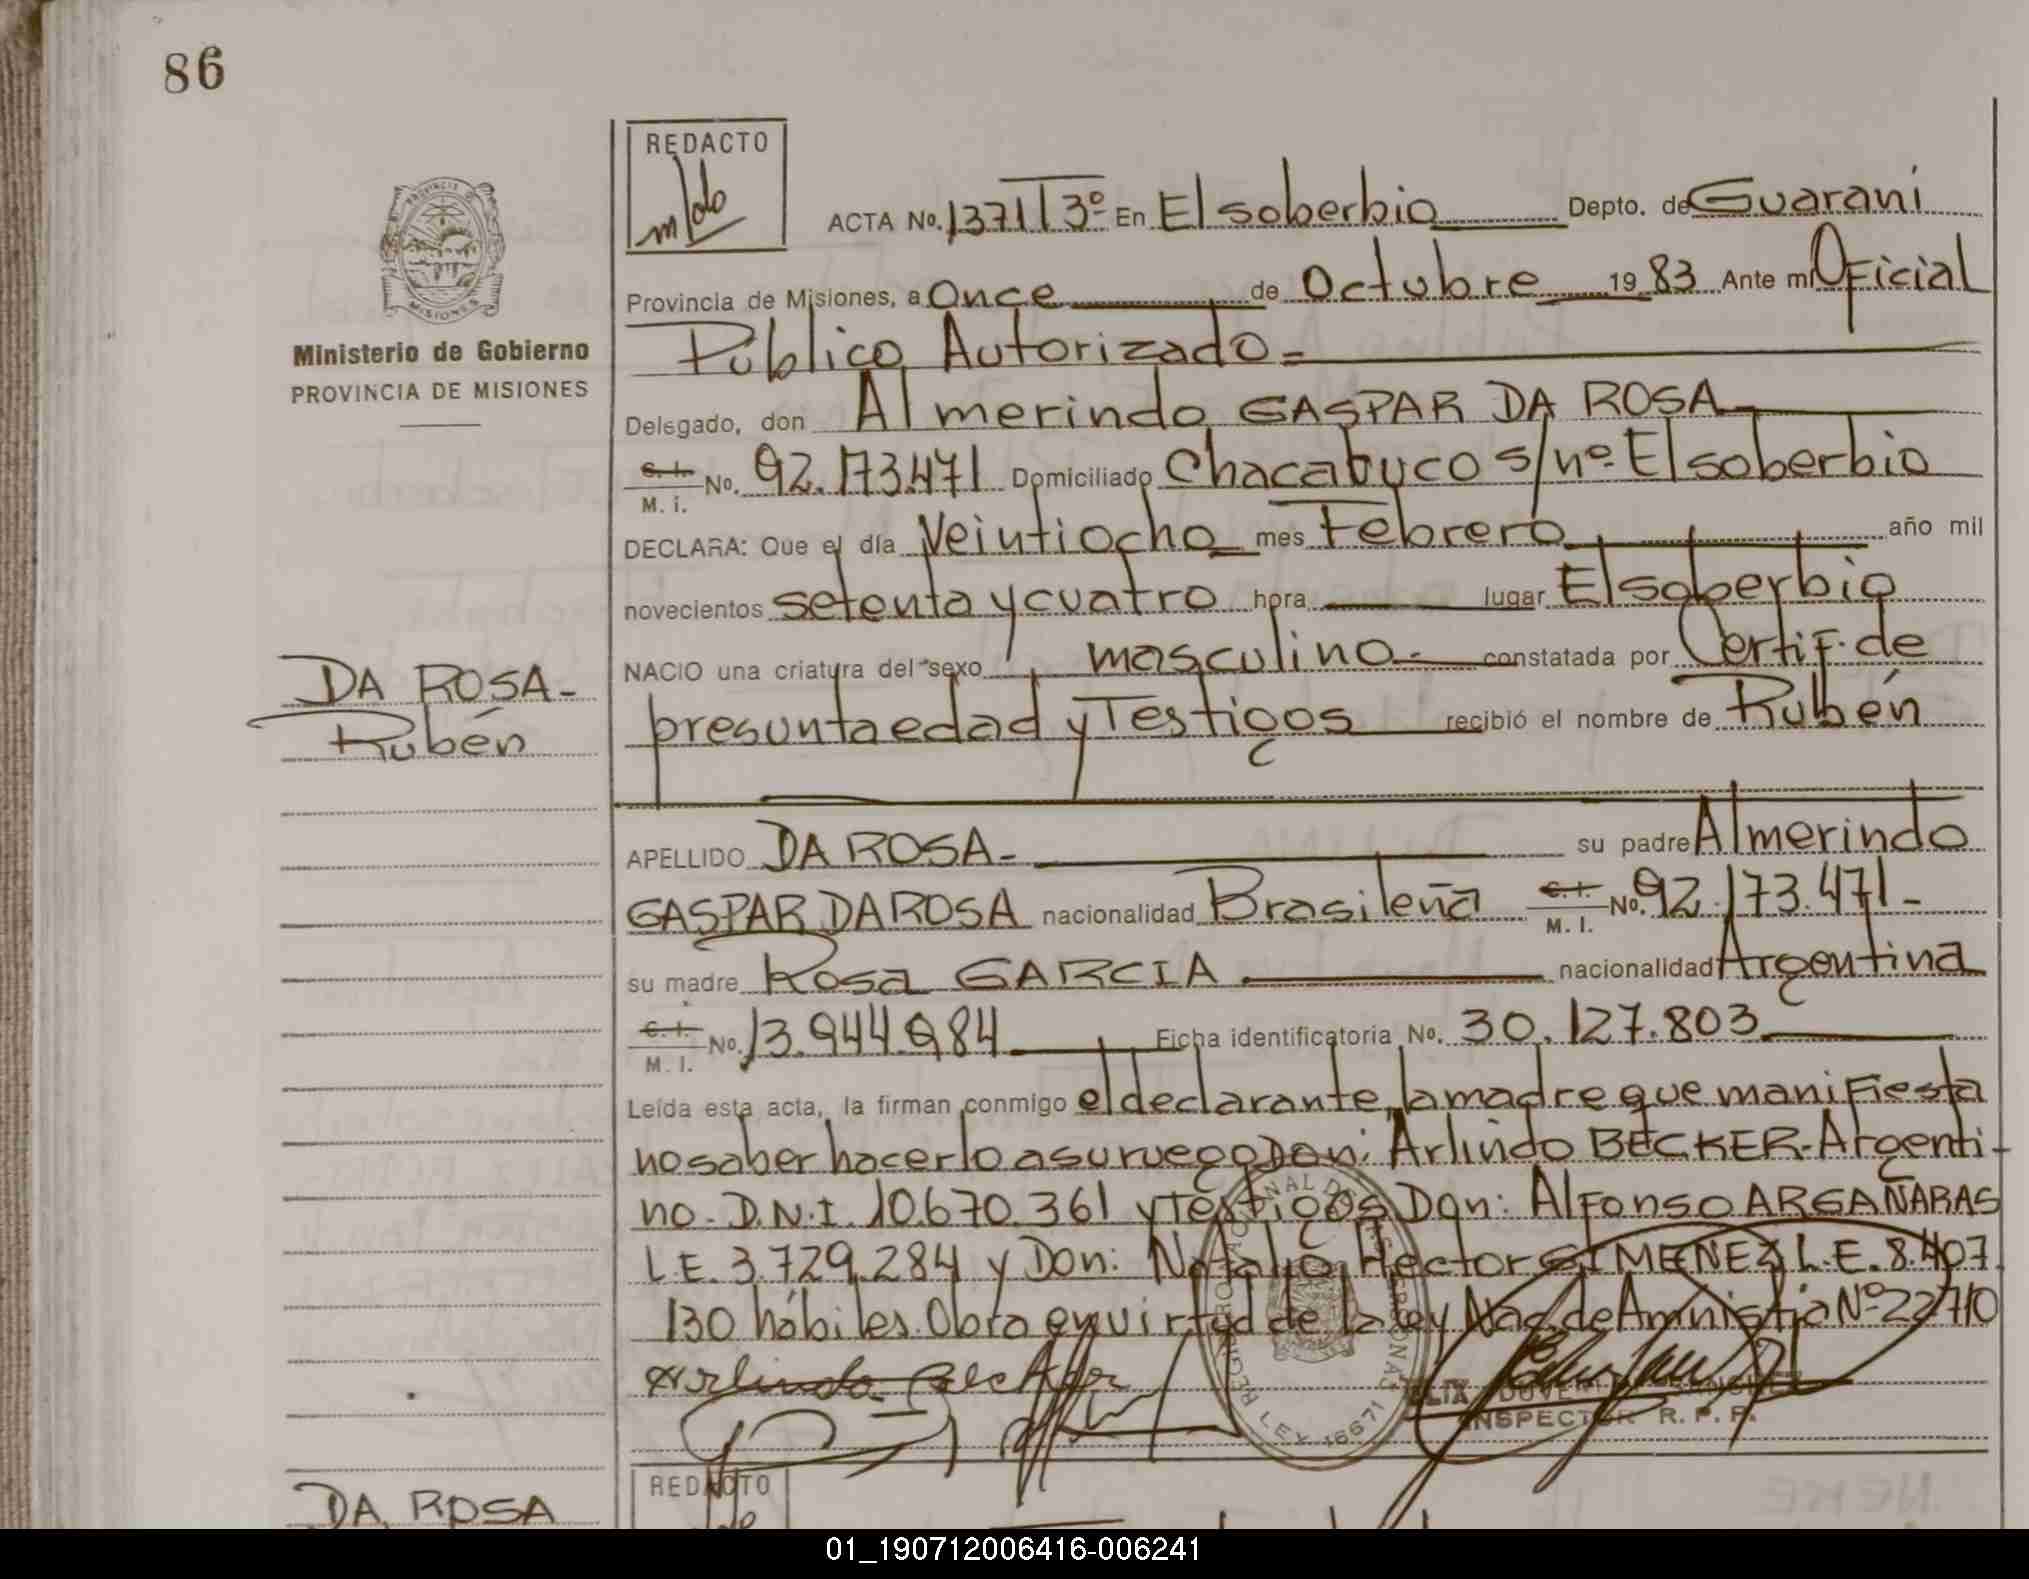 86
REDACTO
ACTA No. 1371 T 3º En El soberbio Depto. de Guaraní
Provincia de Misiones, a Once de Octubre 19 83 Ante mi Oficial
Público Autorizado=
Delegado, don Almerindo GASPAR DA ROSA
C. I. M. I. No. 92.173.471 Domiciliado Chacabuco s/nº El soberbio
DECLARA: Que el día Veintiocho mes Febrero año mil
novecientos setenta y cuatro hora lugar El soberbio
NACIO una criatura del sexo masculino - constatada por Certif. de
presunta edad y Testigos recibió el nombre de Rubén
APELLIDO DA ROSA - su padre Almerindo
GASPAR DA ROSA nacionalidad Brasileña C. I. M. I. No. 92.173.471-
su madre Rosa GARCIA nacionalidad Argentina
C. I. M. I. No. 13.944.984 Ficha identificatoria No. 30.127.803
Leída esta acta, la firman conmigo el declarante, la madre que manifiesta
no saber hacerlo a su ruego Don: Arlindo BECKER-Argenti-
no- D.N.I. 10.670.361 y Testigos Don: Alfonso ARGAÑARAS
L.E. 3.729.284 y Don: Natalio Hector GIMENEZ L.E. 8.407.
130 hábiles. Obra en virtud de la ley Nac de Amnistia Nº 22.710
Arlindo Becker
INSPECTOR R. P. P.
LEY 16671
PROVINCIA DE MISIONES
Ministerio de Gobierno
PROVINCIA DE MISIONES
DA ROSA-
Rubén
DA ROSA
REDACTO
01_190712006416-006241